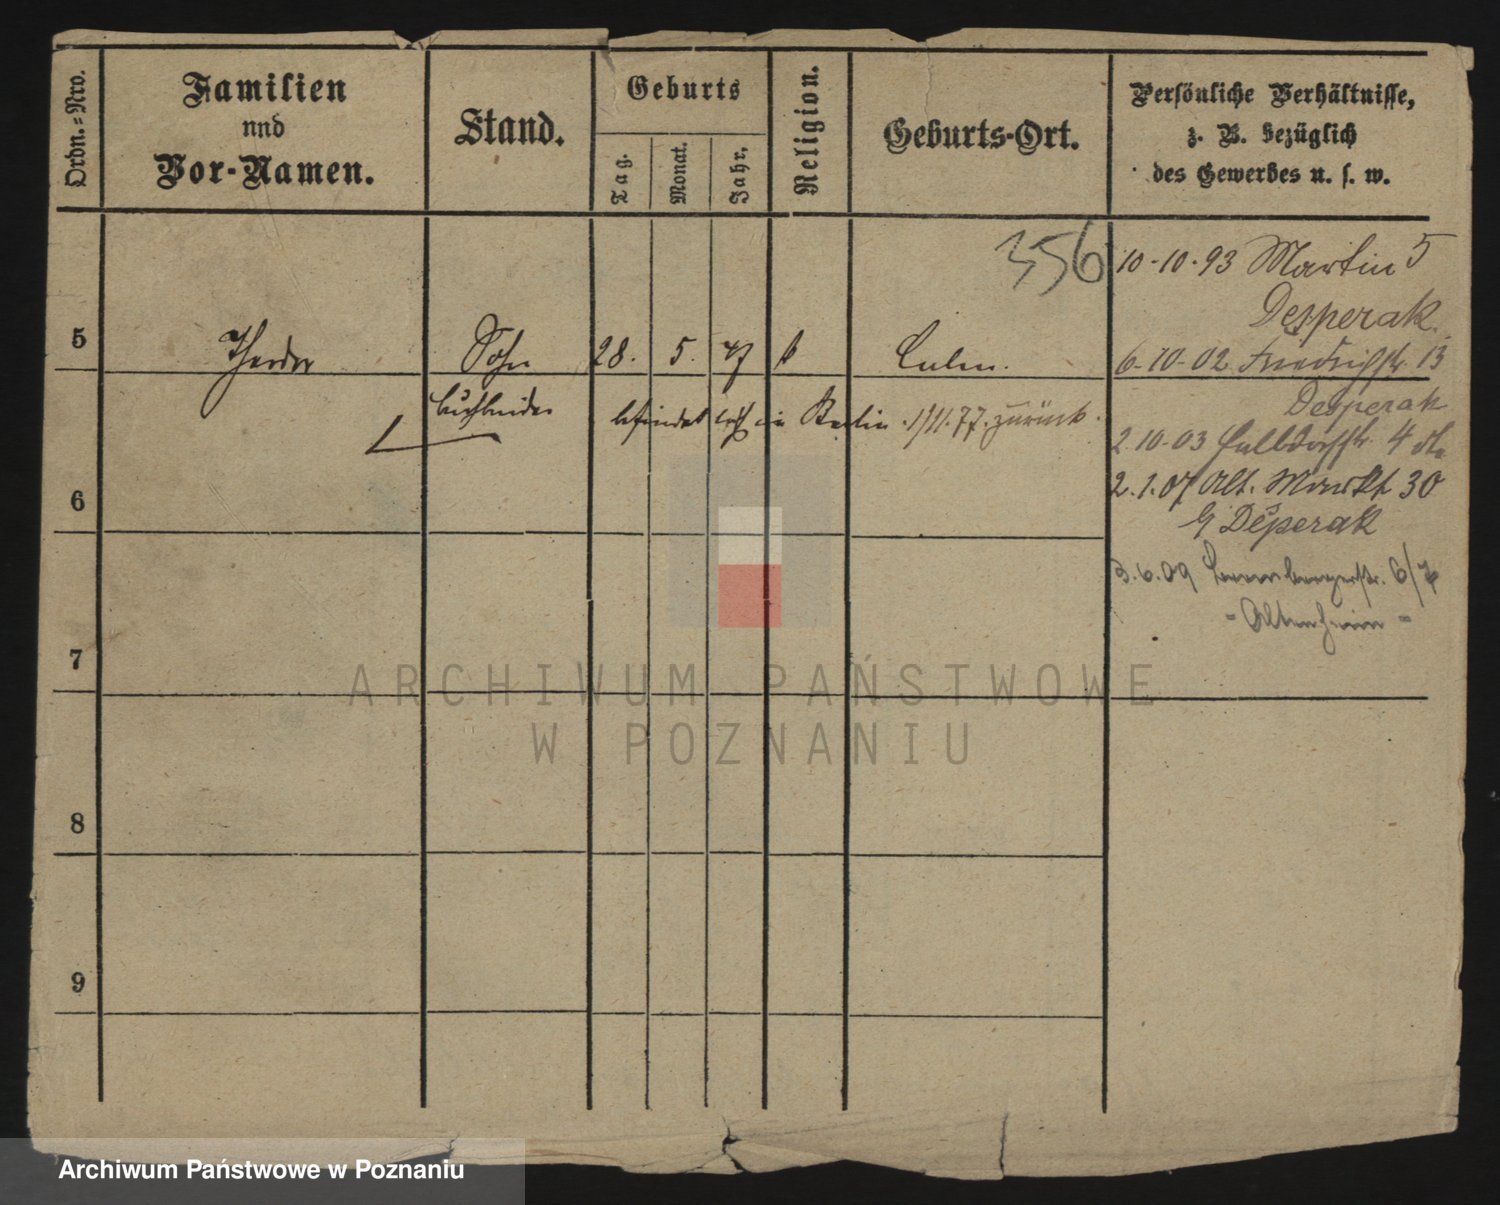 Ordn.-Nro.
Familien
nnd
Vor-Namen.
Stand.
Geburts
Tag.
Monat.
Jahr.
Religion.
Geburts-Ort.
Persönliche Verhältnisse,
z. B. bezüglich
des Gewerbes u. s. w.
356
10-10-93 Martin 5
Desperak.
5 Theodor Sohn 28. 5. 47 Culm.
6-10-02 Friedrichstr 13
Desperak
befindet sich in Berlin. zurück.
2.10.03 4
6
2.1.07 Alt. Markt 30
Desperak
3.6.09 6/7
- Altenheim -
7
8
9
ARCHIWUM PAŃSTWOWE
W POZNANIU
Archiwum Państwowe w Poznaniu